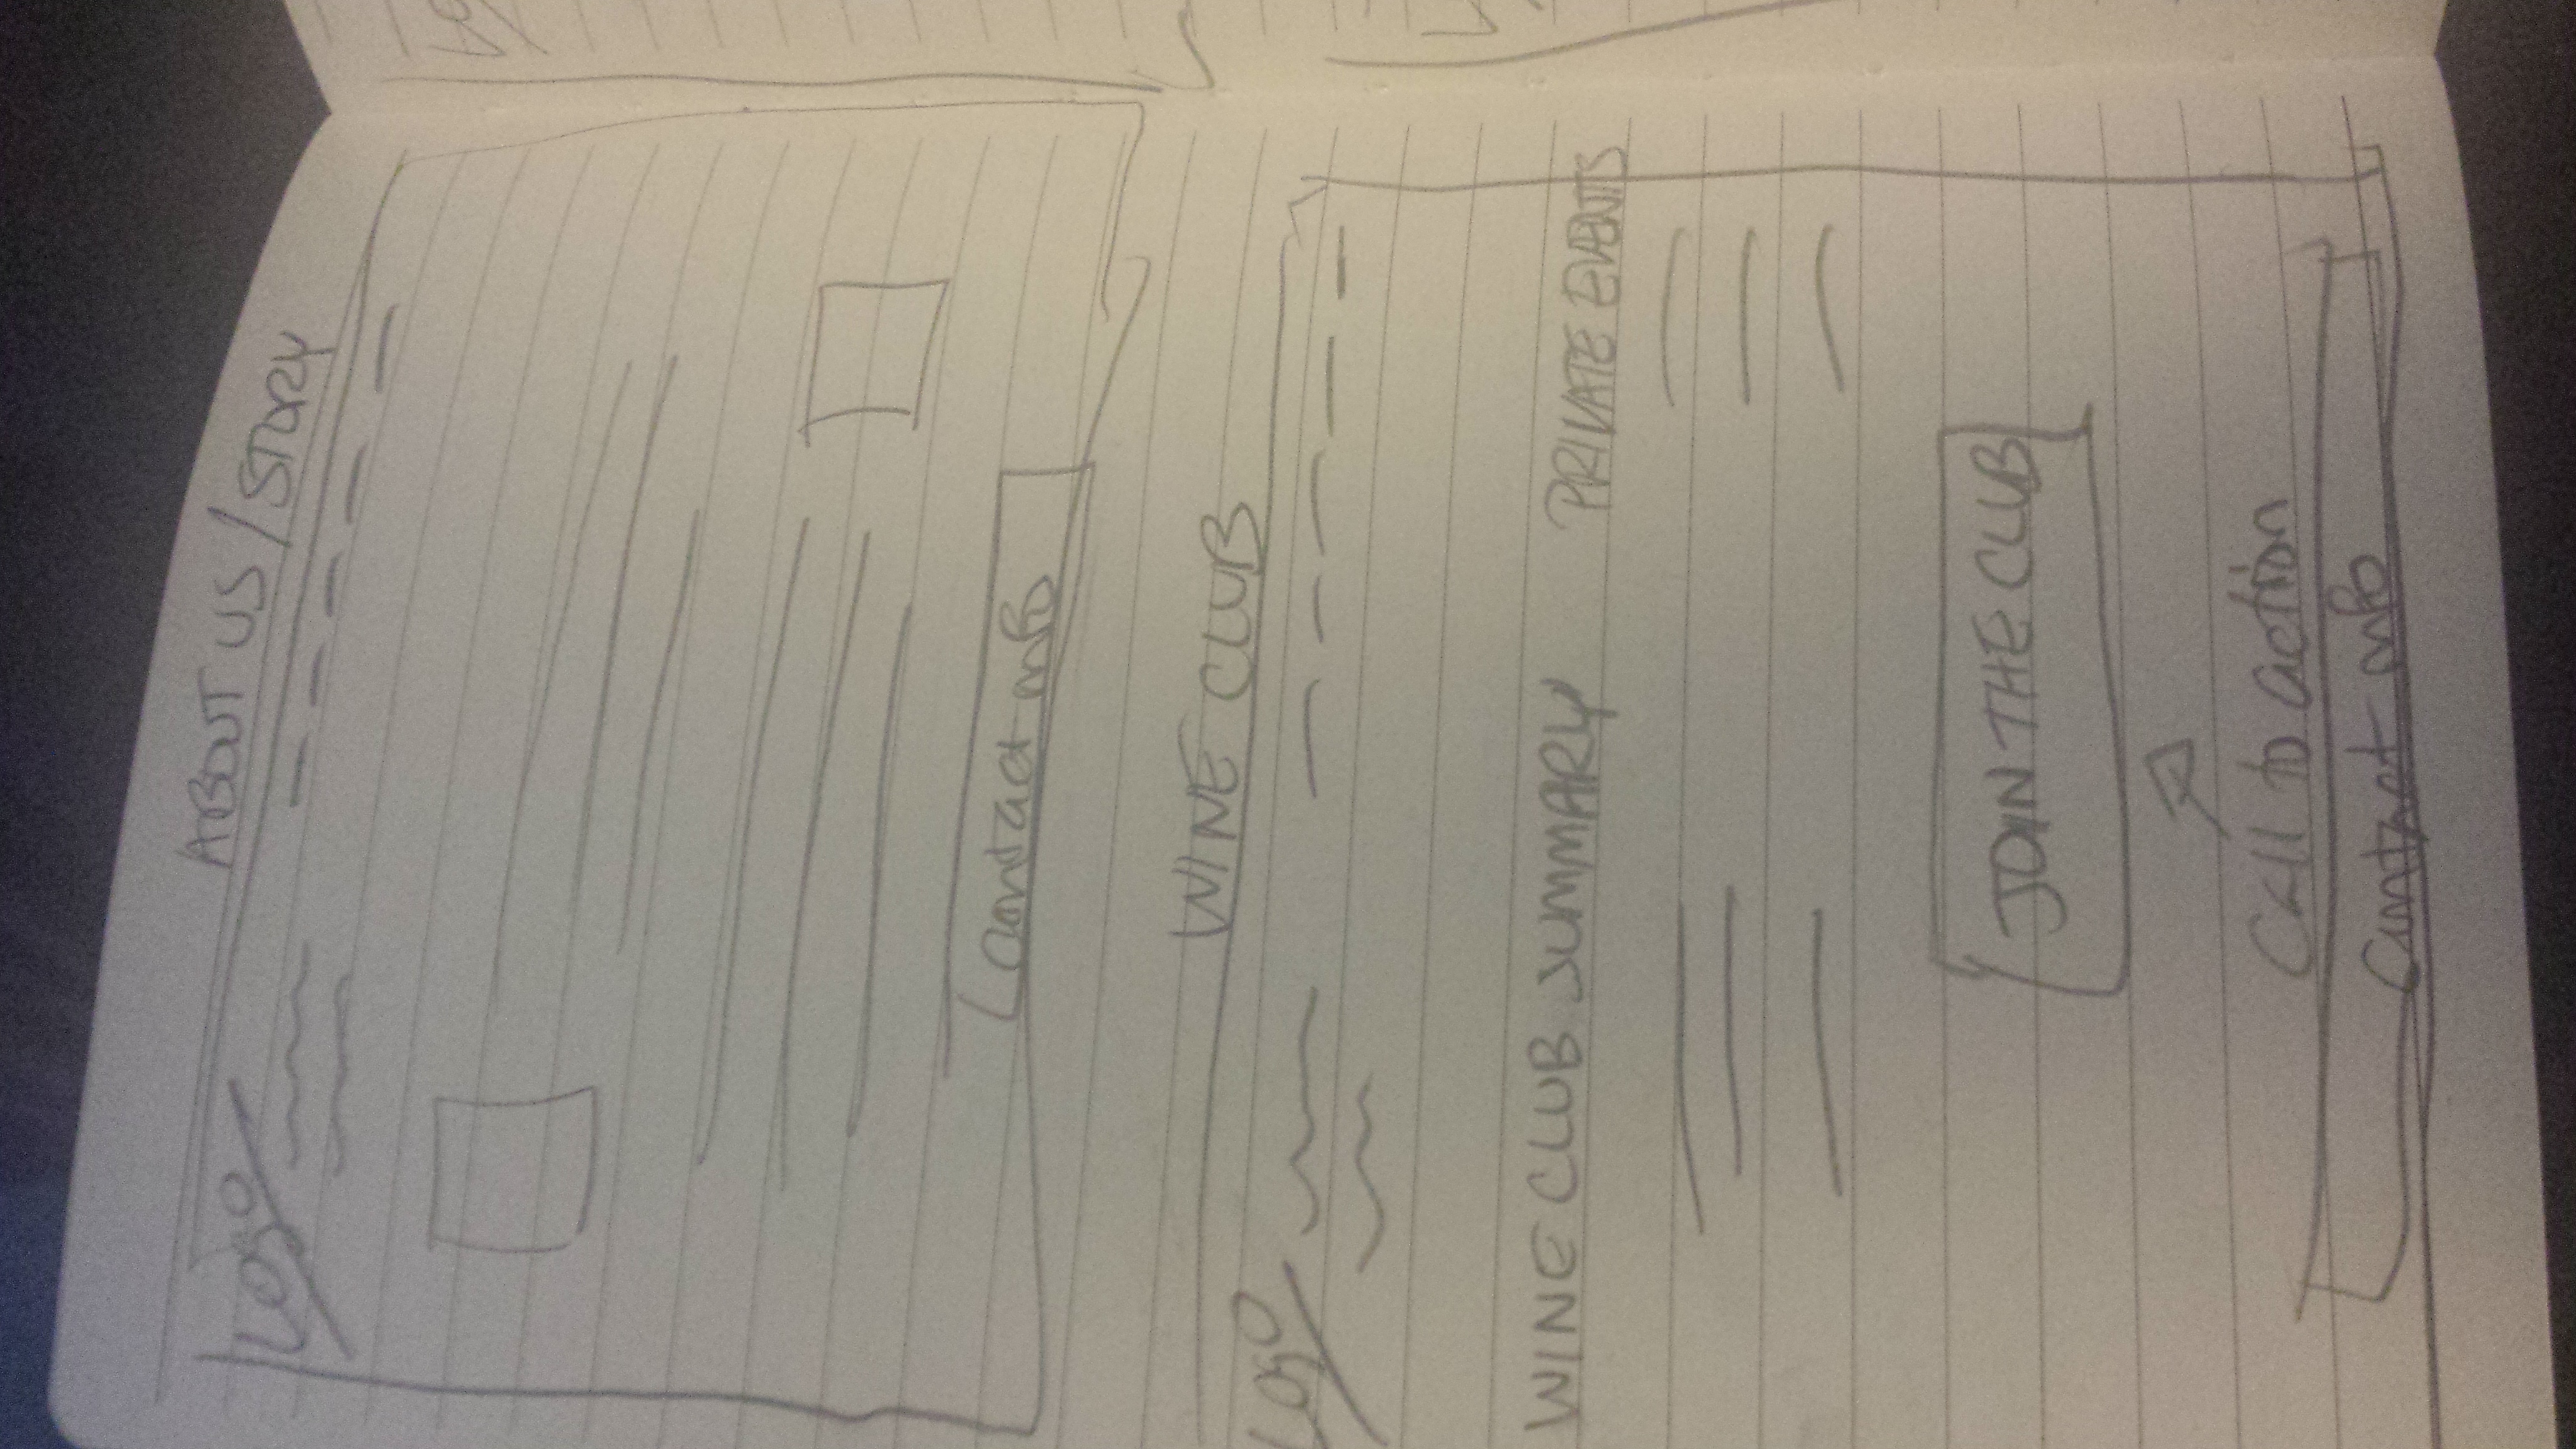 ABOUT US / STORY
Logo
Contact info
WINE CLUB
Logo
WINE CLUB SUMMARY PRIVATE EVENTS
JOIN THE CLUB
Call to action
Contact info